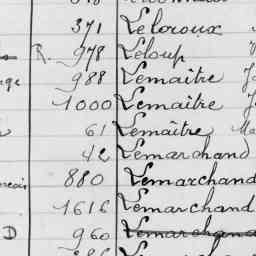 371 Leloroux
R. 978 Leloup
988 Lemaitre
1000 Lemaitre
61 Lemaître Ma
42 Lemarchand
880 Lemarchand
1616 Lemarchand
D 960 Lemarchand